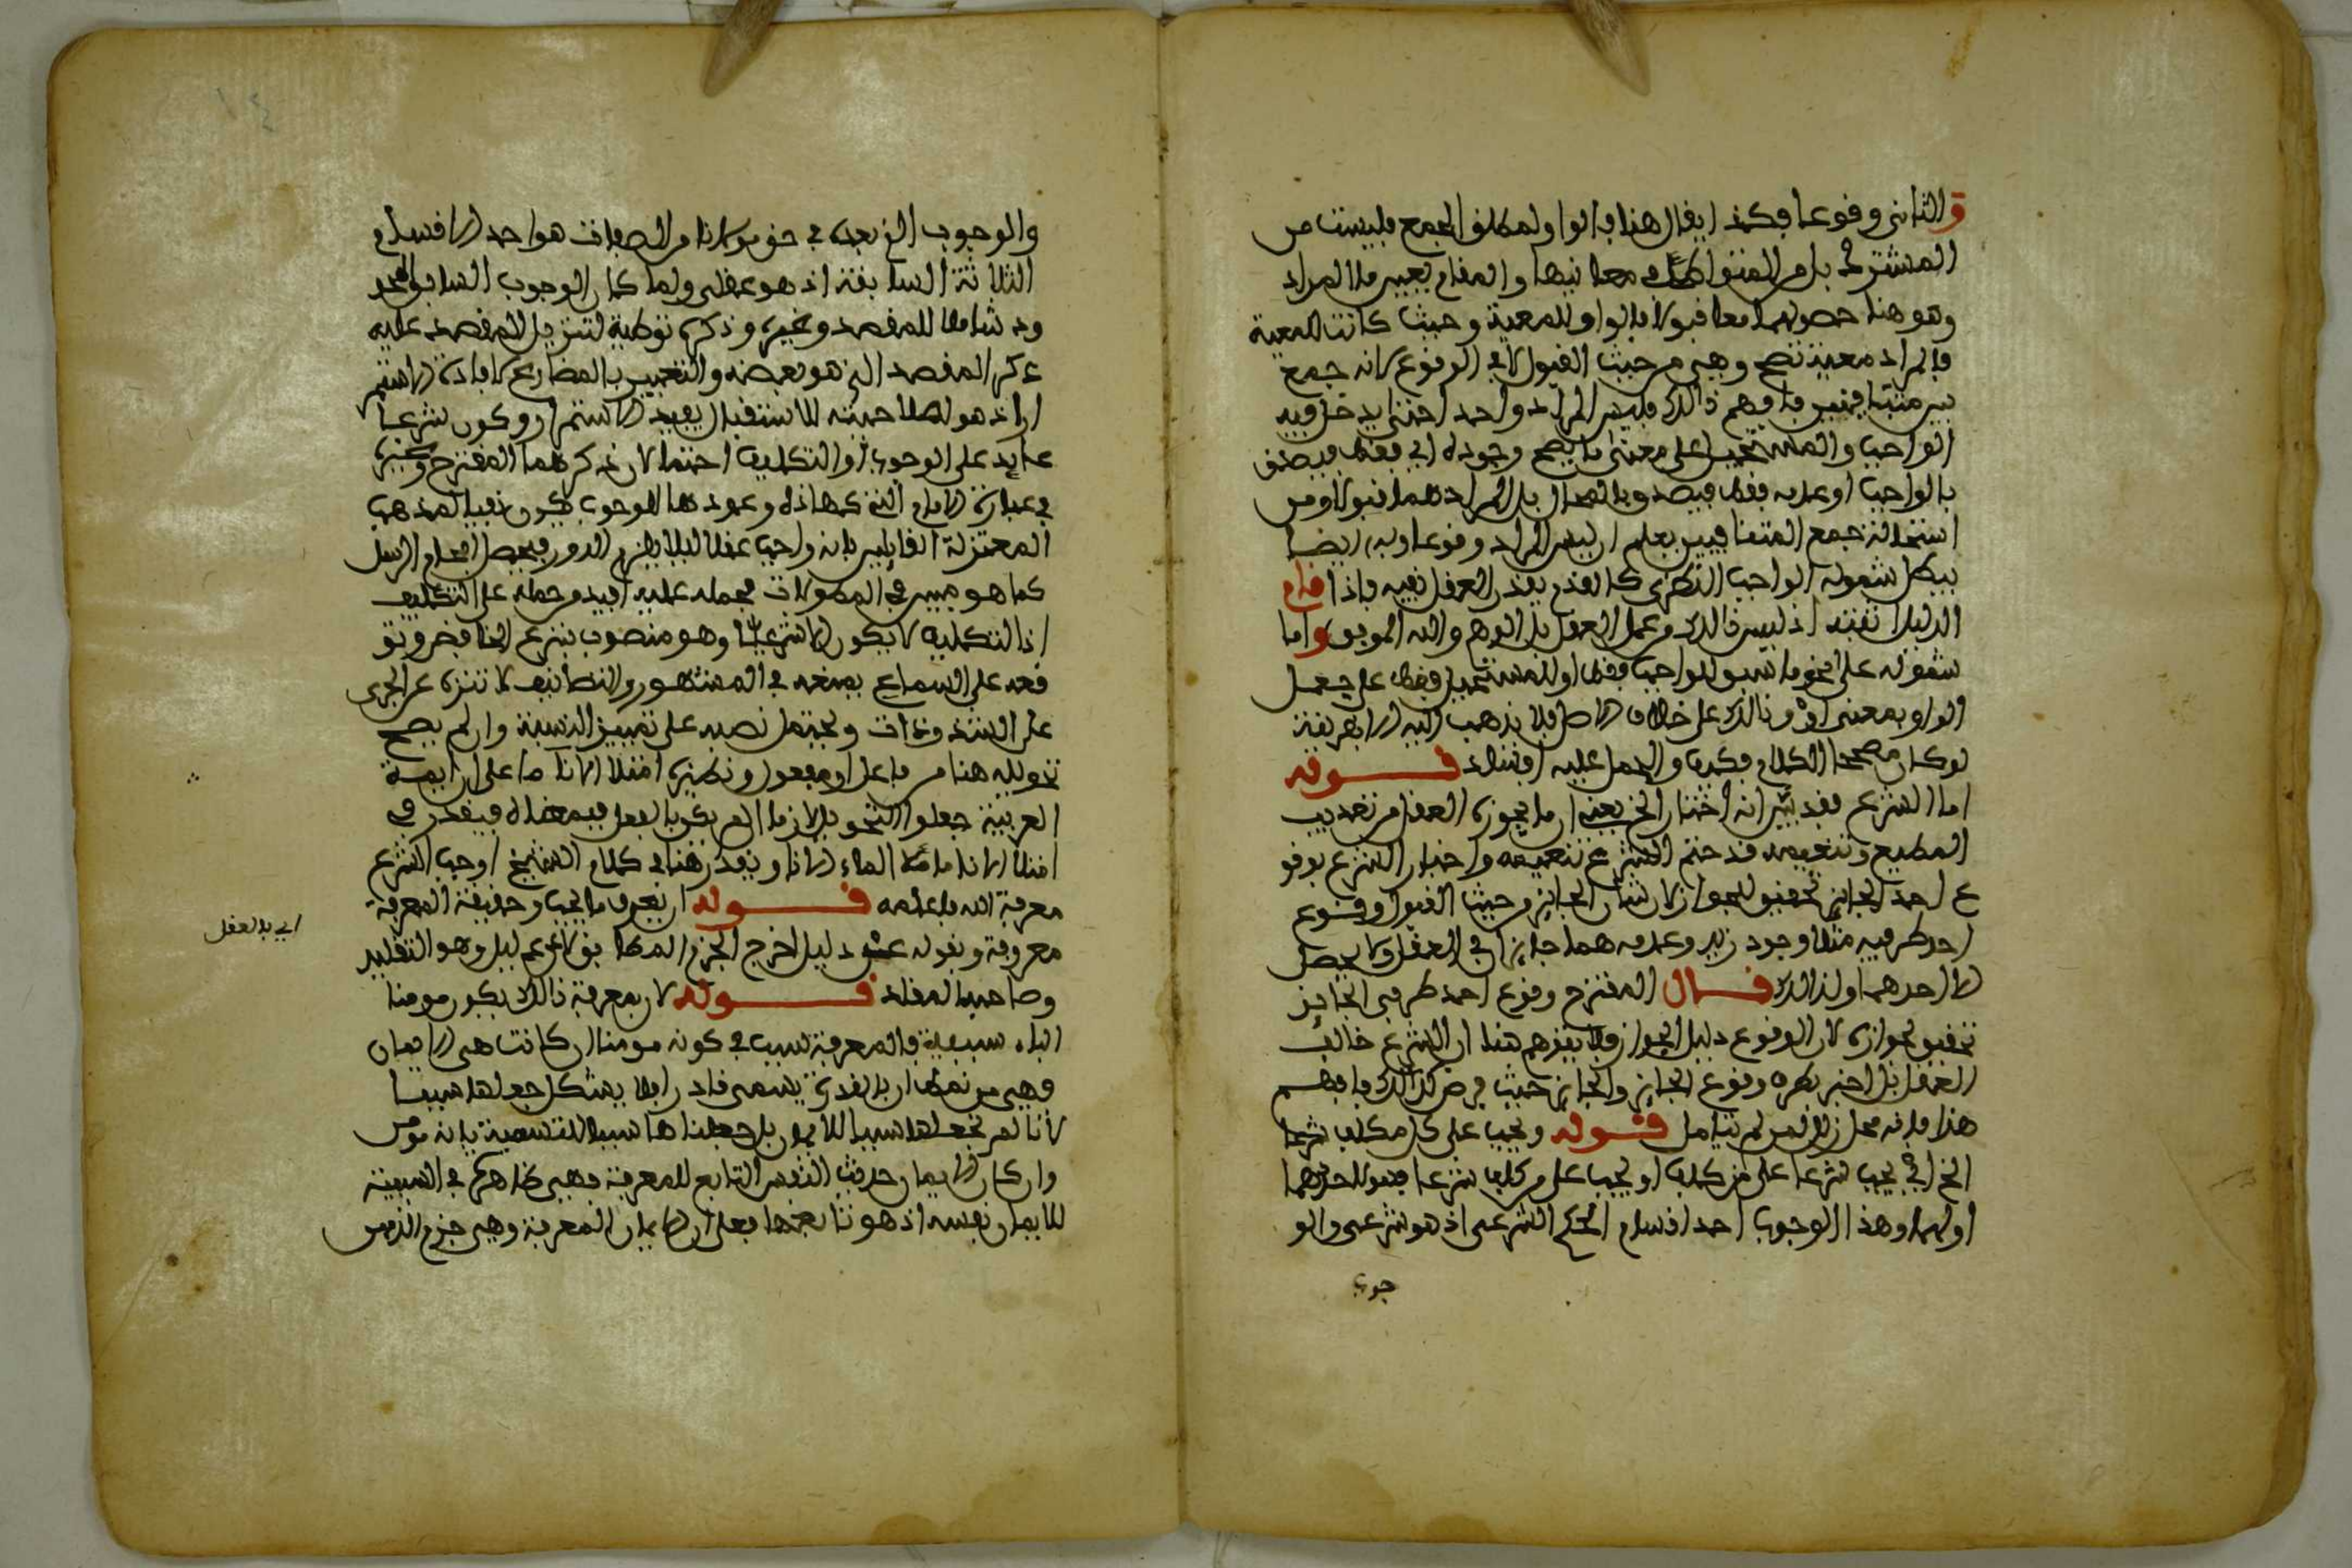 والثاني وقوعا فكذا يقال هذا في الواو لمطلق الجمع فليست من
المشترك بل من المتواطئ في معانيها والمقام يعين المراد
وهو هنا حصولهما معا قبولا فالواو للمعية وحيث كانت للمعية
فالمراد معية تصح وهي من حيث القبول لا في الوقوع لانه جمع
بين متنافيين فافهم ذالك فليس المراد واحد احتى يدخل فيه
الواجب والمستحيل على معنى ما يصح وجوده اي فقط فيصدق
بالواجب او عدمه فقط فيصدق بالمحال بل المراد هما قبولا ومن
استحالة جمع المتنافيين يعلم ان ليس المراد وقوعا وبه ايضا
يبطل شموله الواجب النظري كالقدم يقدر العقل نفيه فاذا قام
الدليل اثبته اذ ليس ذالك من عمل العقل بل الوهم والله الموفق واما
شموله على نحو ما سبق للواجب فقط او للمستحيل فقط على جعل
الواو بمعنى او وذالك على خلاف الاصل فلا يذهب اليه الا بقرينة
لو كان مصححا الكلام فكيف والحمل عليه افساد قوله
اما الشرع فقد بين انه اختار الخ يعني ان ما يجوزه العقل من تعذيب
المطيع وتنعيمه قد حتم الشرع تنعيمه واخبار الشرع بوقو
ع احد الجايز تحقيق للجواز لان شان الجايز من حيث القبول وقوع
احد طرفيه مثلا وجود زيد وعدمه هما جايزان في العقل ولا يحصل
الا احدهما ولذالك قال المقترح وقوع احد طرفي الجايز
تحقيق لجوازه لان الوقوع دليل الجواز فلا يتوهم هنا ان الشرع خالف
العقل بل اخبر بطرو وقوع الجايز والجايز حيث فرض كذالك فافهم
هذا فانه محل زلل لمن لم يتامل قوله ويجب على كل مكلف شرعا
الخ اي يجب شرعا على من كلف او يجب على من كلف شرعا
اولهما وهذا الوجوب احد اقسام الحكم الشرعي اذ هو شرعي والو
جوب
والوجوب الذي بعده في حق مولانا من الصفات هو احد الاقسام
الثلاثة السابقة اذ هو عقلي ولما كان الوجوب السابق المحد
ود شاملا للمقصد وغيره وذكره توطية لتنزيل المقصد عليه
ذكر المقصد الذي هو بعضه والتعبير بالمضارع لافادة الاستمر
ار اذ هو لصلاحيته للاستقبال يفيد الاستمرار وكون شرعا
عايد على الوجوب او التكليف احتمالان ذكرهما المقترح وغيره
في عبارة الامام التي كهاذه وعودها للوجوب يكون نفيا لمذهب
المعتزلة القايلين بانه واجب عقلا ليلا يلزم الدور فيحصل افحام الرسل
كما هو مبين في المطولات فحمله عليه افيد من حمله على التكليف
اذ التكليف لا يكون الا شرعيا وهو منصوب بنزع الخافض وتو
قفه على السماع يضعفه في المشهور والتصانيف لا تنزه عن الجري
على الشذوذات ويحتمل نصبه على تمييز النسبة وان لم يصح
تحويله هنا من فاعل او مفعول ونظيره امتلا الاناء ماء على ان ايمة
العربية جعلوا التحويل لازما لم يكن بالفعل فيقدر في
امتلا الاناء ماء ملا الماء الاناء ويقدر هنا في كلام الشيخ اوجب الشرع
معرفة الله فاعلمه قوله ان يعرف ما يجب وحقيقة المعرفة
معروفة وبقوله عن دليل اخرج الجزم المطابق لا عن دليل وهو التقليد
وصاحبه المقلد قوله لان بمعرفة ذالك يكون مومنا
الباء سببية فالمعرفة سبب في كونه مومنا ان كانت هي الايمان
فهي من نمط ان بالقدرة يسمى قادرا فلا يشكل جعلها سببا
لانا لم نجعلها سببا للايمان بل جعلناها سببا للتسمية بانه مومن
وان كان الايمان حديث النفس التابع للمعرفة فهي ظاهرة في السببية
للايمان نفسه اذ هو تابعها فعلى ان الايمان المعرفة وهي جزم الذهن
اي بالعقل
١٤